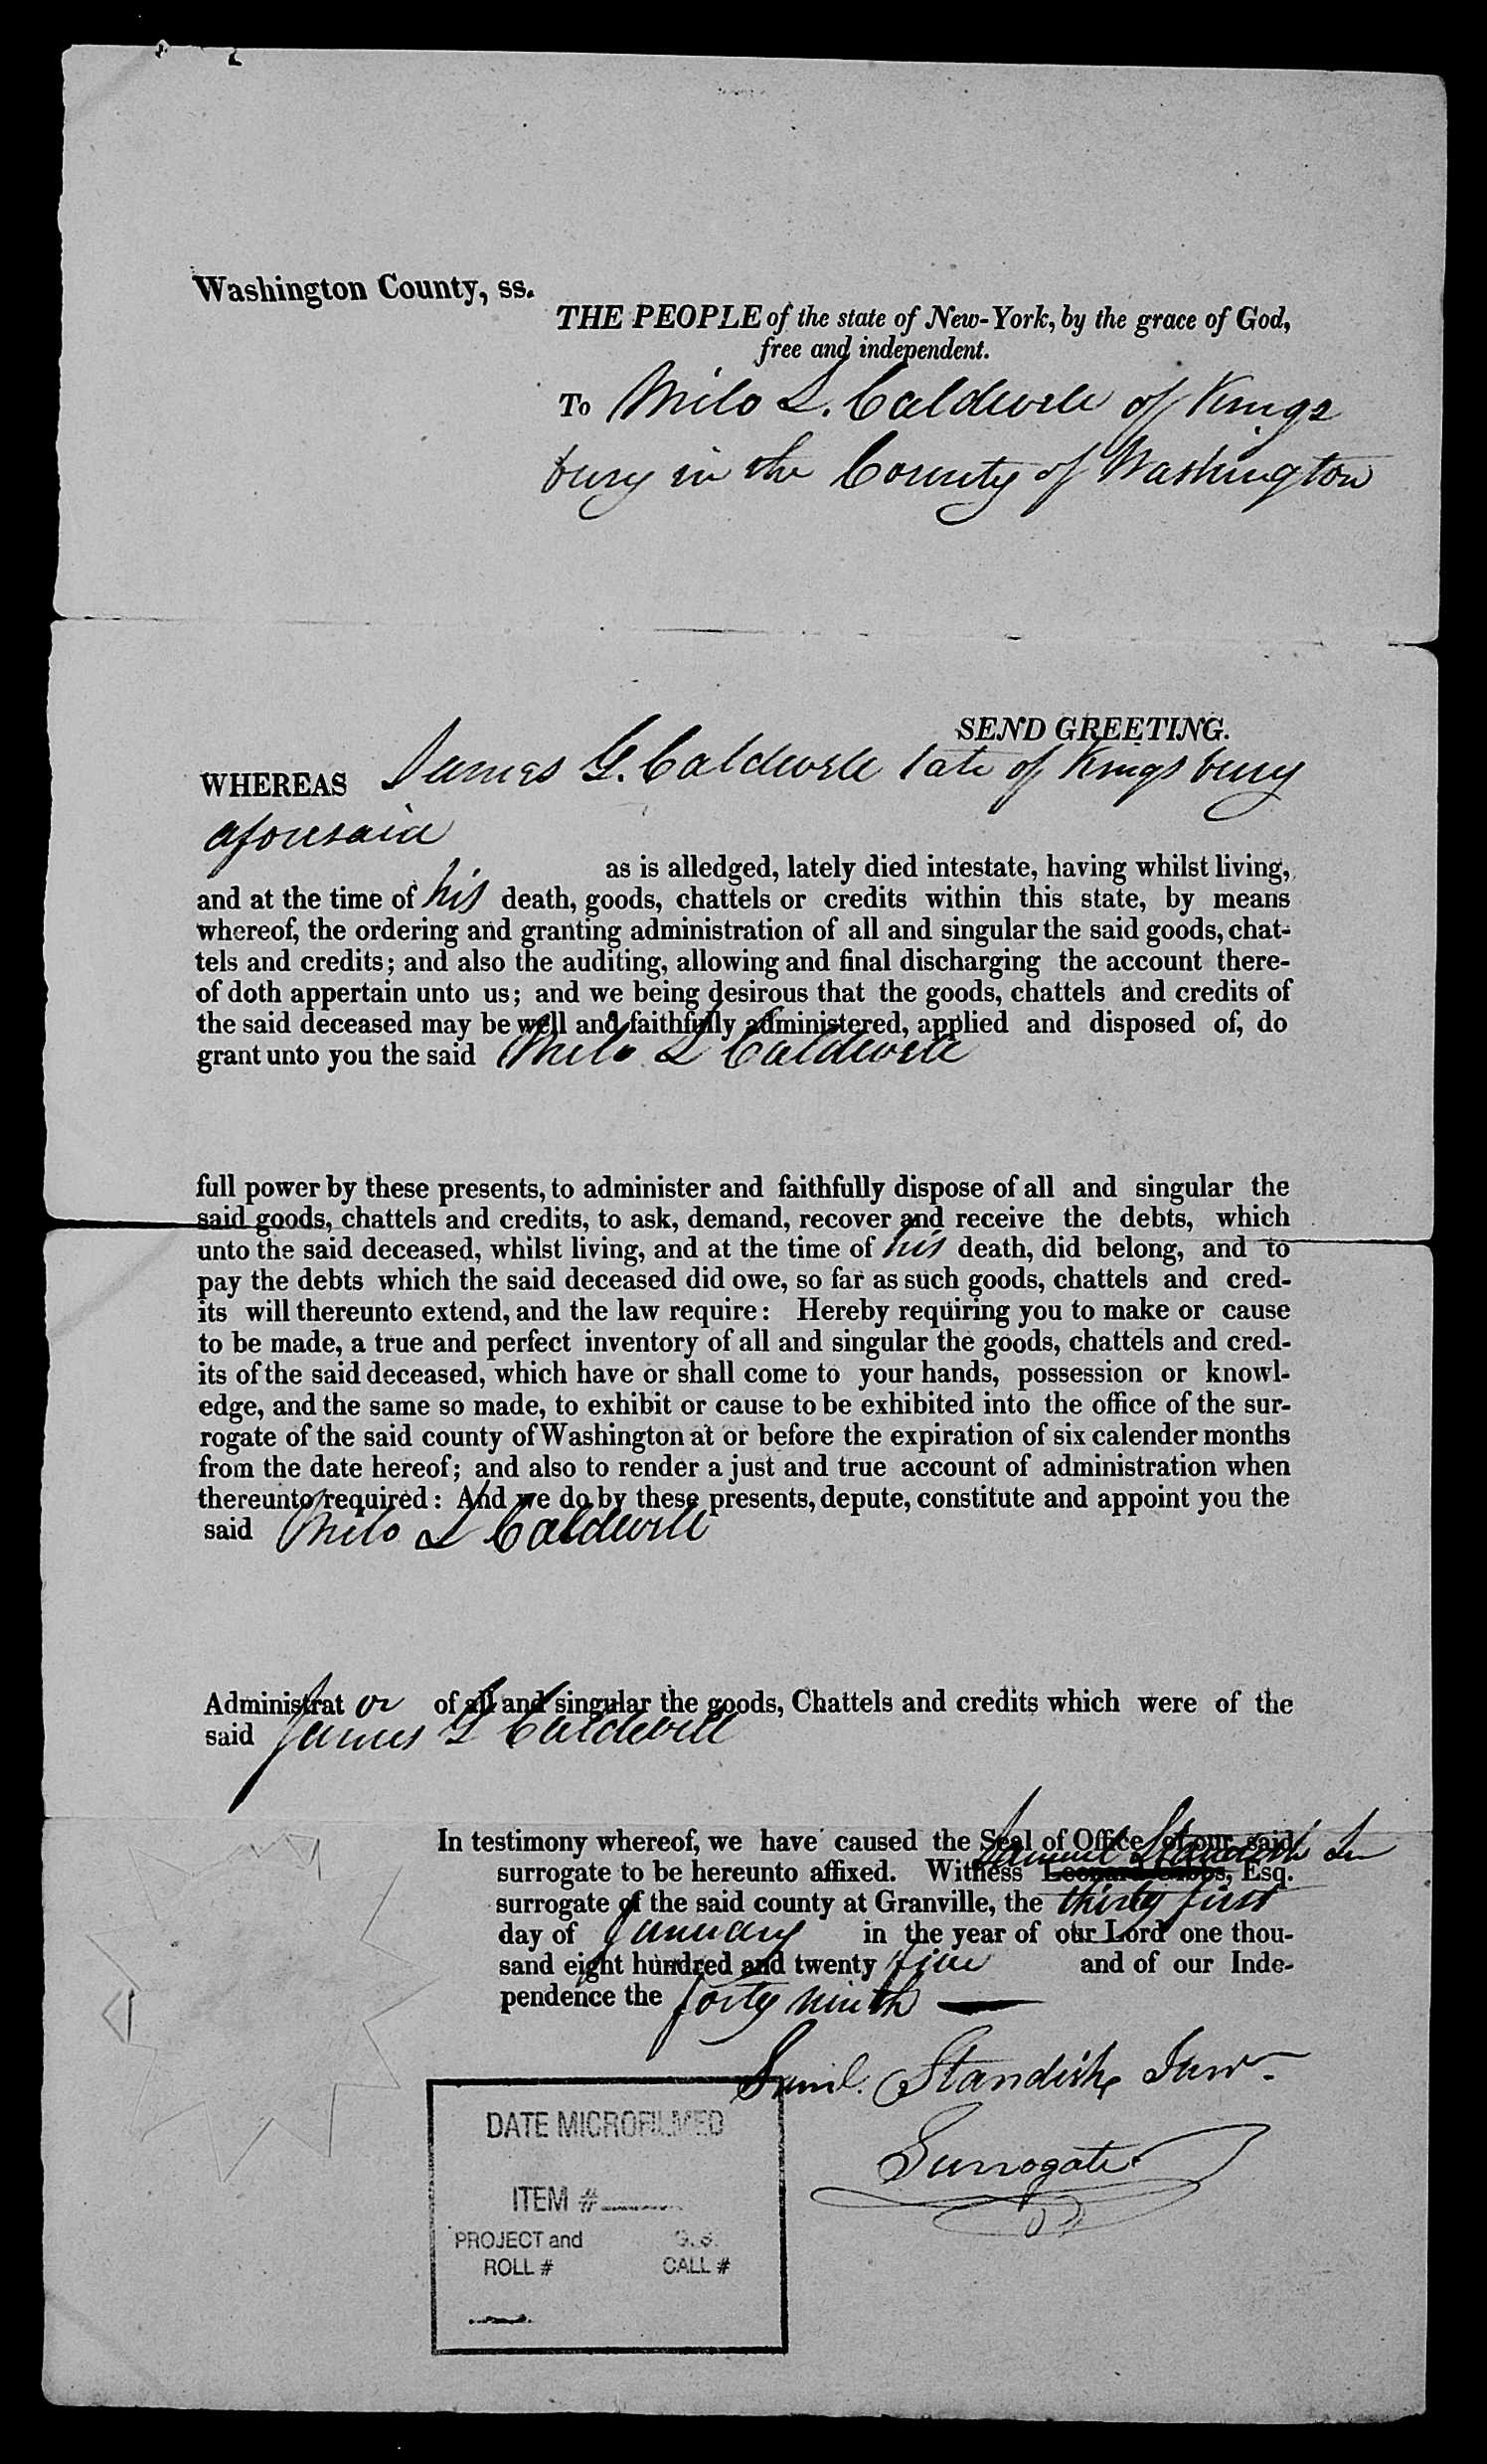 Washington County, ss.
THE PEOPLE of the state of New-York, by the grace of God,
free and independent.
To Milo L. Caldwell of Kings
bury in the County of Washington
SEND GREETING.
WHEREAS James G. Caldwell late of Kingsbury
aforesaid
as is alledged, lately died intestate, having whilst living,
and at the time of his death, goods, chattels or credits within this state, by means
whereof, the ordering and granting administration of all and singular the said goods, chat-
tels and credits; and also the auditing, allowing and final discharging the account there-
of doth appertain unto us; and we being desirous that the goods, chattels and credits of
the said deceased may be well and faithfully administered, applied and disposed of, do
grant unto you the said Milo L Caldwell
full power by these presents, to administer and faithfully dispose of all and singular the
said goods, chattels and credits, to ask, demand, recover and receive the debts, which
unto the said deceased, whilst living, and at the time of his death, did belong, and to
pay the debts which the said deceased did owe, so far as such goods, chattels and cred-
its will thereunto extend, and the law require: Hereby requiring you to make or cause
to be made, a true and perfect inventory of all and singular the goods, chattels and cred-
its of the said deceased, which have or shall come to your hands, possession or knowl-
edge, and the same so made, to exhibit or cause to be exhibited into the office of the sur-
rogate of the said county of Washington at or before the expiration of six calender months
from the date hereof; and also to render a just and true account of administration when
thereunto required: And we do by these presents, depute, constitute and appoint you the
said Milo L Caldwell
Administrat or of all and singular the goods, Chattels and credits which were of the
said James G Caldwell
In testimony whereof, we have caused the Seal of Office of our said
surrogate to be hereunto affixed. Witness Samuel Standish Jun Leonard Gibbs, Esq.
surrogate of the said county at Granville, the thirty first
day of January in the year of our Lord one thou-
sand eight hundred and twenty five and of our Inde-
pendence the forty ninth
Saml. Standish Junr.
Surrogate
DATE MICROFILMED
ITEM #
PROJECT and G.S.
ROLL # CALL #